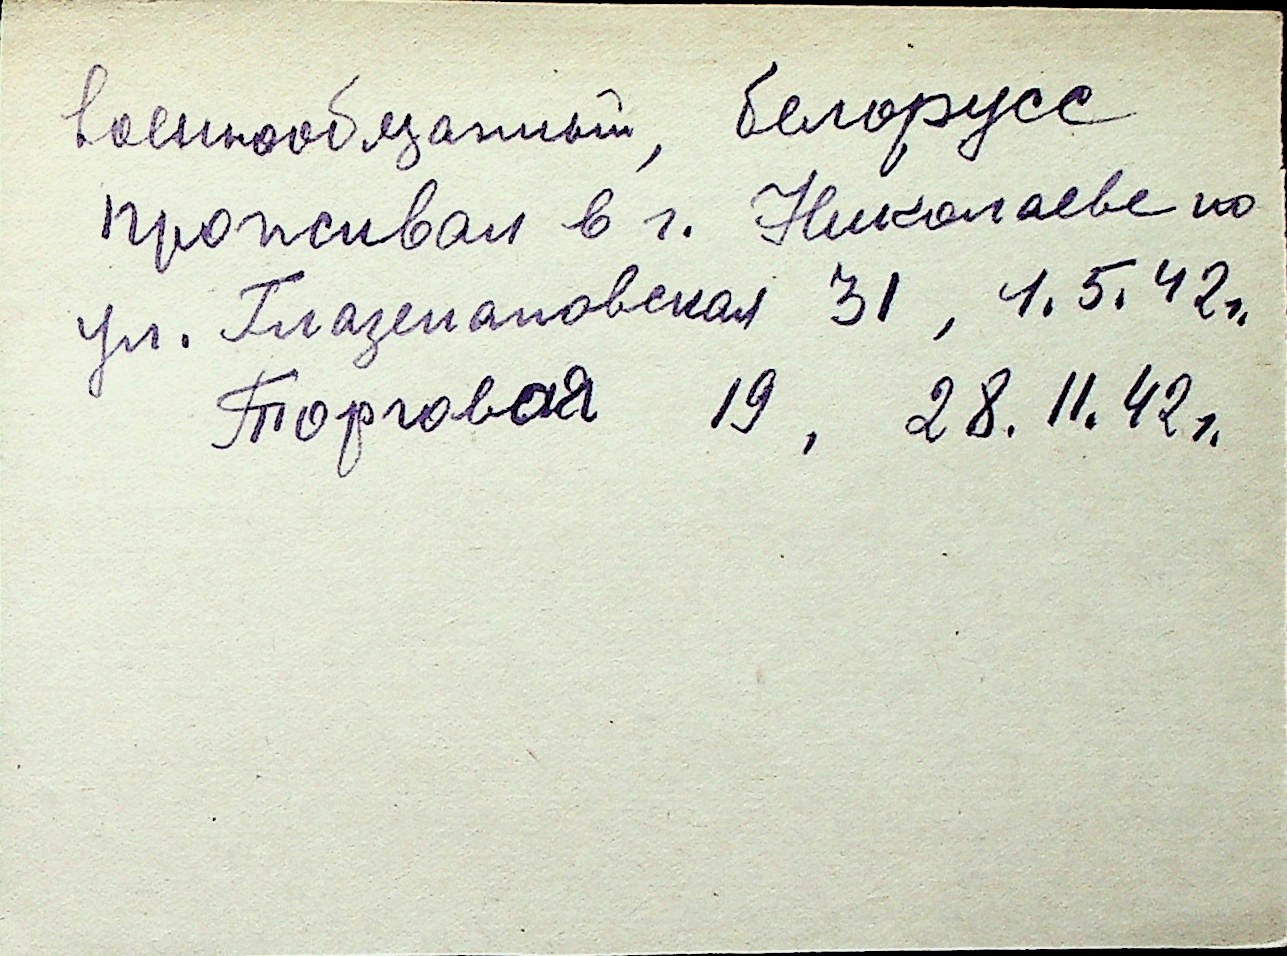 военнообязанный, белорусс
проживал в г. Николаеве по
ул. Глазенаповская 31, 1.5.42г.
Торговая 19, 28.11.42г.